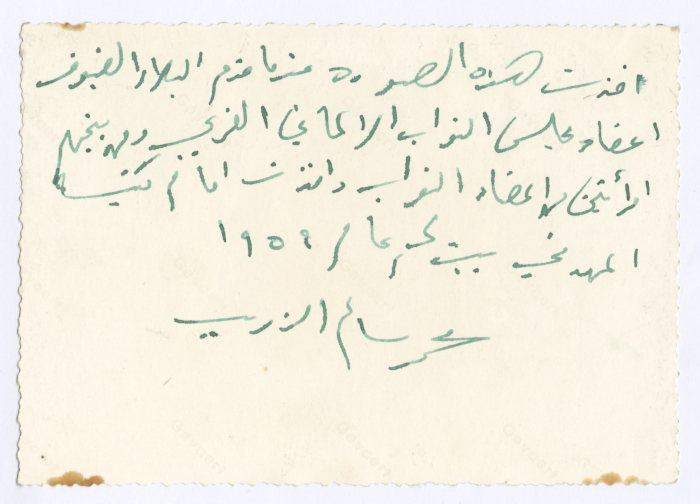 اخذت هذه الصوره عندما قدم البلاد الضيوف
اعضاء مجلس النواب الالماني الغربي ومن بينهم
امرأتين من اعضاء النواب واخذت امام كنيسة
المهد في بيت لحم عام ١٩٥٩
محمد سالم الذويب